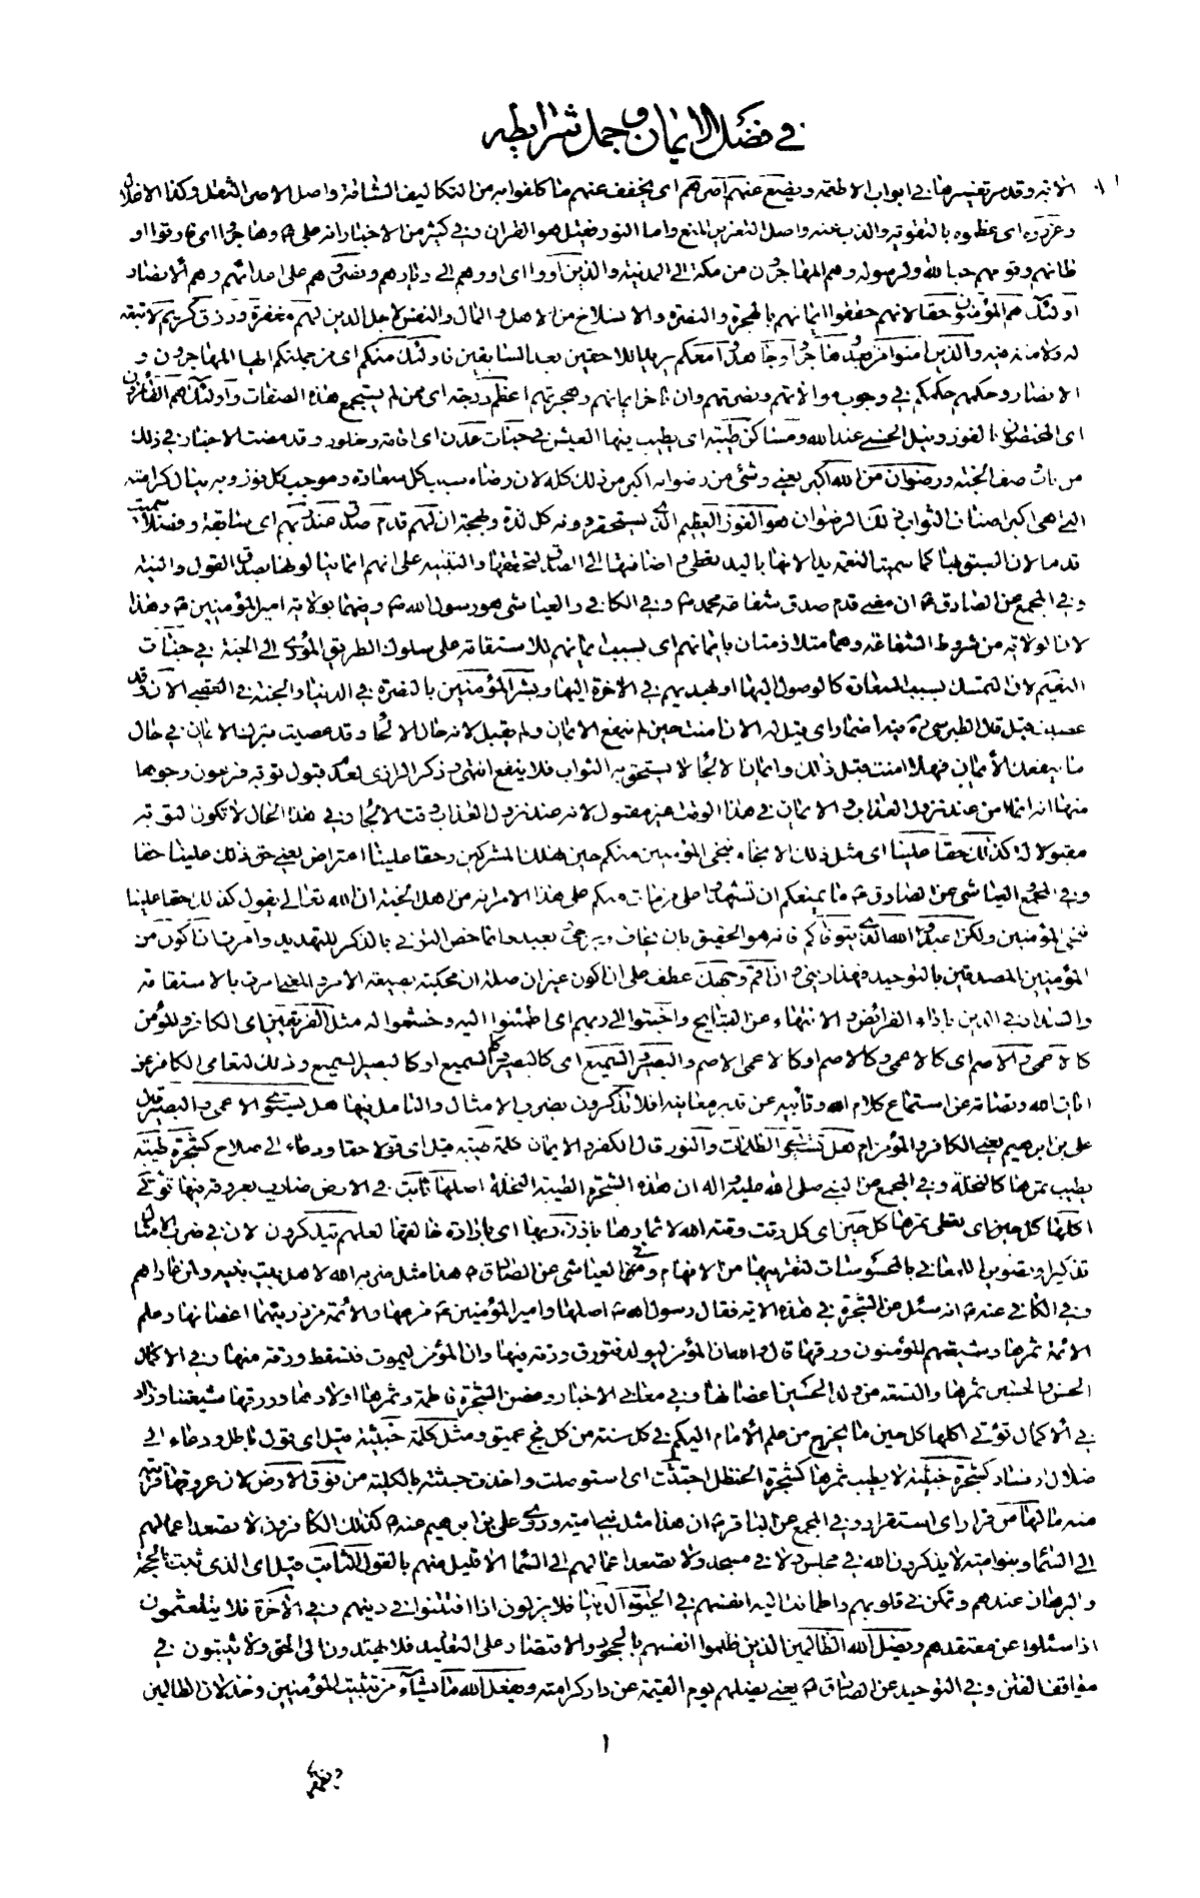 في فضل الايمان و جمل شرايطه
الاية وقد مر تفسيرها في ابواب الاطعمة ويضع عنهم اصرهم اى يخفف عنهم ما كلفوا به من التكاليف الشاقة واصل الاصر الثقل وكذا الاغلال
وعزروه اى عظموه بالتقوية والذب عنه واصل التعزير المنع واما النور فقيل هو القران وفي كثير من الاخبار انه على ع وهاجروا اى فارقوا او
طانهم وقومهم حبا لله ولرسوله وهم المهاجرون من مكة الى المدينة والذين آووا اى اووهم الى ديارهم ونصروهم على اعدائهم وهم الانصار
اولئك هم المؤمنون حقا لانهم حققوا ايمانهم بالهجرة والنصرة والانسلاخ من الاهل والمال والنفس لاجل الدين لهم مغفرة ورزق كريم لا تبعة
له ولا منة فيه والذين امنوا من بعد وهاجروا وجاهدوا معكم يريد اللاحقين بعد السابقين فاولئك منكم اى من جملتكم ايها المهاجرون و
الانصار وحكمهم حكمكم في وجوب موالاتهم ونصرتهم وان تاخر ايمانهم وهجرتهم اعظم درجة اى ممن لم يستجمع هذه الصفات واولئك هم الفائزون
اى المختصون بالفوز ونيل الحسنى عند الله ومساكن طيبة اى يطيب فيها العيش في جنات عدن اى اقامة وخلود وقد مضت الاخبار في ذلك
من باب صفة الجنة ورضوان من الله اكبر يعنى وشئ من رضوانه اكبر من ذلك كله لان رضاه سبب كل سعادة وموجب كل فوز وبه ينال كرامته
التي هي اكبر اصناف الثواب ذلك الرضوان هو الفوز العظيم الذي يستحقر دونه كل لذة وبهجة ان لهم قدم صدق عند ربهم اى سابقة وفضلا سميت
قدما لان السبق بها كما سميت النعمة يدا لانها باليد تعطى واضافتها الى الصدق لتحققها والتنبيه على انهم انما ينالونها بصدق القول والنية
وفي المجمع عن الصادق ع ان معنى قدم صدق شفاعة محمد ص وفي الكافي والعياشي هو رسول الله ص وفيهما بولاية امير المؤمنين ع وهذا
لان الولاية من شروط الشفاعة وهما متلازمتان بايمانهم اى بسبب ايمانهم للاستقامة على سلوك الطريق المؤدى الى الجنة في جنات
النعيم لان التمسك بسبب السعادة كالوصول اليها او يهديهم في الاخرة اليها وبشر المؤمنين بالنصرة في الدنيا والجنة في العقبى الآن وقد
عصيت قبل قال الطبرسى ره فيه اضمار اى قيل له الان امنت حين لم ينفع الايمان ولم يقبل لانه حال الالجاء وقد عصيت بترك الايمان في حال
ما ينفعك الايمان فهلا امنت قبل ذلك وايمان الالجاء لا يستحق به الثواب فلا ينفع انتهى وذكر الرازى لعدم قبول توبة فرعون وجوها
منها انه انما امن عند نزول العذاب والايمان في هذا الوقت غير مقبول لانه عند نزول العذاب وقت الالجاء وفي هذا الحال لا تكون التوبة
مقبولة كذلك حقا علينا اى مثل ذلك الانجاء ننجى المؤمنين منكم حين نهلك المشركين وحقا علينا اعتراض يعنى حق ذلك علينا حقا
وفي المجمع العياشي عن الصادق ع ما يمنعكم ان تشهدوا على من مات منكم على هذا الامر انه من اهل الجنة ان الله تعالى يقول كذلك حقا علينا
ننجى المؤمنين ولكن اعبد الله الذي يتوفاكم فانه هو الحقيق بان يخاف ويرجى ويعبد وانما خص التوفى بالذكر للتهديد وامرت ان اكون من
المؤمنين المصدقين بالتوحيد فهذا ديني وان اقم وجهك عطف على ان اكون غير ان صلة ان محكية بصيغة الامر والمعنى امرت بالاستقامة
والسداد في الدين باداء الفرائض والانتهاء عن القبايح واخبتوا الى ربهم اى اطمئنوا اليه وخشعوا له مثل الفريقين اى الكافر والمؤمن
كالاعمى والاصم اى كالاعمى وكالاصم او كالاعمى الاصم والبصير والسميع اى كالبصير وكالسميع او كالبصير السميع وذلك لتعامى الكافر عن
ايات الله وتصامه عن استماع كلام الله وتأبيه عن تدبر معانيه افلا تذكرون بضرب الامثال والتامل فيها هل يستوى الاعمى والبصير قال
على بن ابرهيم يعنى الكافر والمؤمن ام هل تستوى الظلمات والنور قال الكفر والايمان كلمة طيبة قيل اى قولا حقا ودعاء الى صلاح كشجرة طيبة
يطيب ثمرها كالنخلة وفي المجمع عن النبي صلى الله عليه واله ان هذه الشجرة الطيبة النخلة اصلها ثابت في الارض ضارب بعروقه فيها تؤتى
اكلها كل حين اى تعطى ثمرها كل حين اى كل وقت وقته الله لاثمارها باذن ربها اى بارادة خالقها لعلهم يتذكرون لان في ضرب الامثال
تذكيرا وتصويرا للمعانى بالمحسوسات لتقريبها من الافهام وفي العياشي عن الصادق ع هذا مثل ضربه الله لاهل بيت نبيه ولمن عاداهم
وفي الكافي عنه ع انه سئل عن الشجرة في هذه الاية فقال رسول الله ص اصلها وامير المؤمنين ع فرعها والائمة من ذريتهما اغصانها وعلم
الائمة ثمرها وشيعتهم المؤمنون ورقها قال والله ان المؤمن ليولد فتورق ورقة فيها وان المؤمن ليموت فتسقط ورقة منها وفي الاكمال
الحسن والحسين ثمرها والتسعة من ولد الحسين اغصانها وفي معانى الاخبار وغصن الشجرة فاطمة وثمرها اولادها وورقها شيعتنا وزاد
في الاكمال تؤتى اكلها كل حين ما يخرج من علم الامام اليكم في كل سنة من كل فج عميق ومثل كلمة خبيثة قيل اى قول باطل ودعاء الى
ضلال وفساد كشجرة خبيثة لا يطيب ثمرها كشجرة الحنظل اجتثت اى استوصلت واخذت جثته بالكلية من فوق الارض لان عروقها قريبة
منه مالها من قرار اى استقرار وفي المجمع عن الباقر ع ان هذا مثل بنى امية وروى على بن ابرهيم عنه ع كذلك الكافرون لا تصعد اعمالهم
الى السماء وبنو امية لا يذكرون الله في مجلس ولا في مسجد ولا تصعد اعمالهم الى السماء الا قليل منهم بالقول الثابت قيل اى الذي ثبت بالحجة
والبرهان عندهم وتمكن في قلوبهم واطمانت اليه انفسهم في الحيوة الدنيا فلا يزلون اذا افتتنوا في دينهم وفي الآخرة فلا يتلعثمون
اذا سئلوا عن معتقدهم ويضل الله الظالمين الذين ظلموا انفسهم بالجحود والاقتصار على التقليد فلا يهتدون الى الحق ولا يثبتون في
مواقف الفتن وفي التوحيد عن الصادق ع يعنى يضلهم يوم القيمة عن دار كرامته ويفعل الله ما يشاء من تثبيت المؤمنين وخذلان الظالمين
١